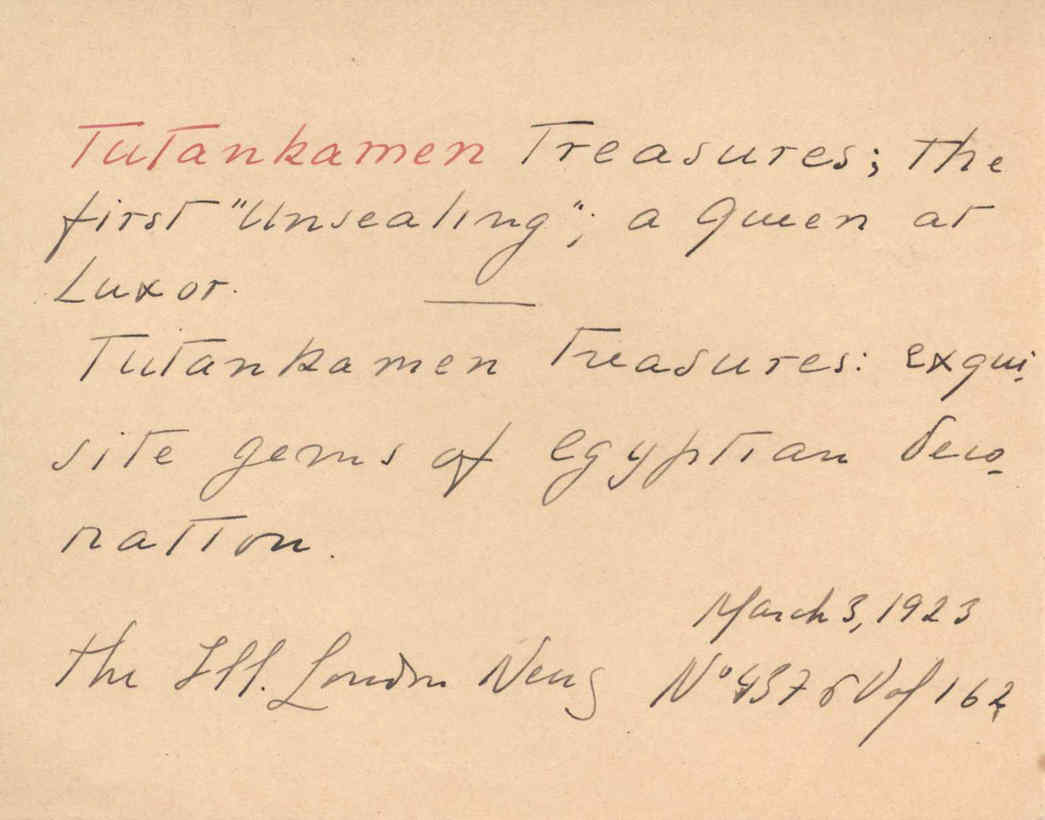 Tutankamen Treasures; the
first "Unsealing"; a Queen at
Luxor.
Tutankamen Treasures: exqui-
site gems of Egyptian Deco-
ration.
March 3, 1923
The Ill. London News Nº 4376 Vol 162